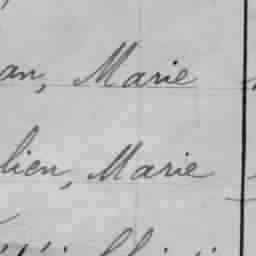 an, Marie
lien, Marie